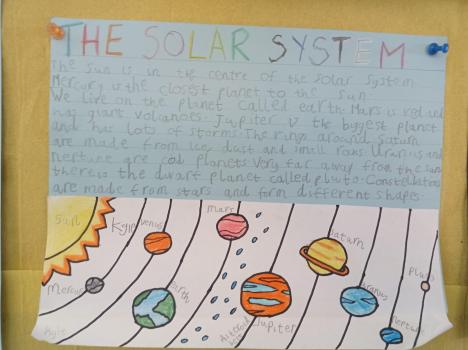 THE SOLAR SYSTEM
The Sun is in the centre of the solar System
Mercury is the closest planet to the sun
We live on the planet called earth. Mars is red and
has giant volcanoes. Jupiter is the biggest planet
and has lots of storms. The rings around Saturn
are made from ice, dust and small rocks. Uranus and
neptune are cold planets very far away from the sun
there is the dwarf planet called pluto. Constellations
are made from stars and form different shapes.
Sun
Kyle
Venus
Mars
Saturn
Pluto
Mercury
Earth
Uranus
Asteroid
belt
Jupiter
neptune
Kyle